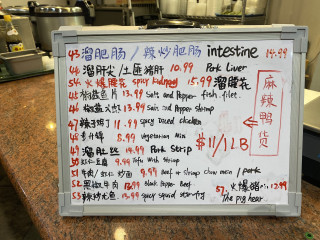 43. 溜肥肠 / 辣炒肥肠 intestine 14.99
44. 溜肝尖 / 土匪猪肝 10.99 Pork Liver
54. 火爆腰花 spicy kidney 15.99 溜腰花
45. 椒盐鱼片 13.99 Salt and Pepper fish filet
46. 椒盐 13.99 Salt and Pepper shrimp
47. 辣子鸡丁 11.99 spicy diced chicken
48. 素什锦 8.99 vegetable mix
49. 溜肉丝 14.99 Pork Strip
50. 虾仁豆腐 9.99 Tofu with Shrimp
51. 牛肉 / 虾仁 炒面 9.99 Beef & shrimp chow mein / pork
52. 黑椒牛肉 13.99 Black Pepper Beef
53. 辣炒鱿鱼 13.99 spicy squid stir-fry
麻辣鸭货
$11/1LB
57. 火爆 12.99
The pig hear